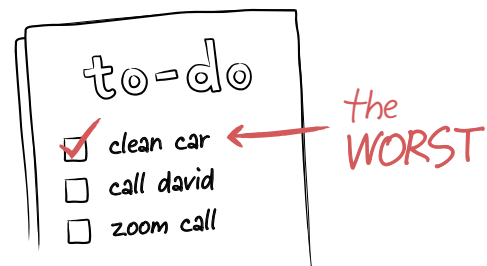 to-do
clean car
call david
zoom call
the
WORST